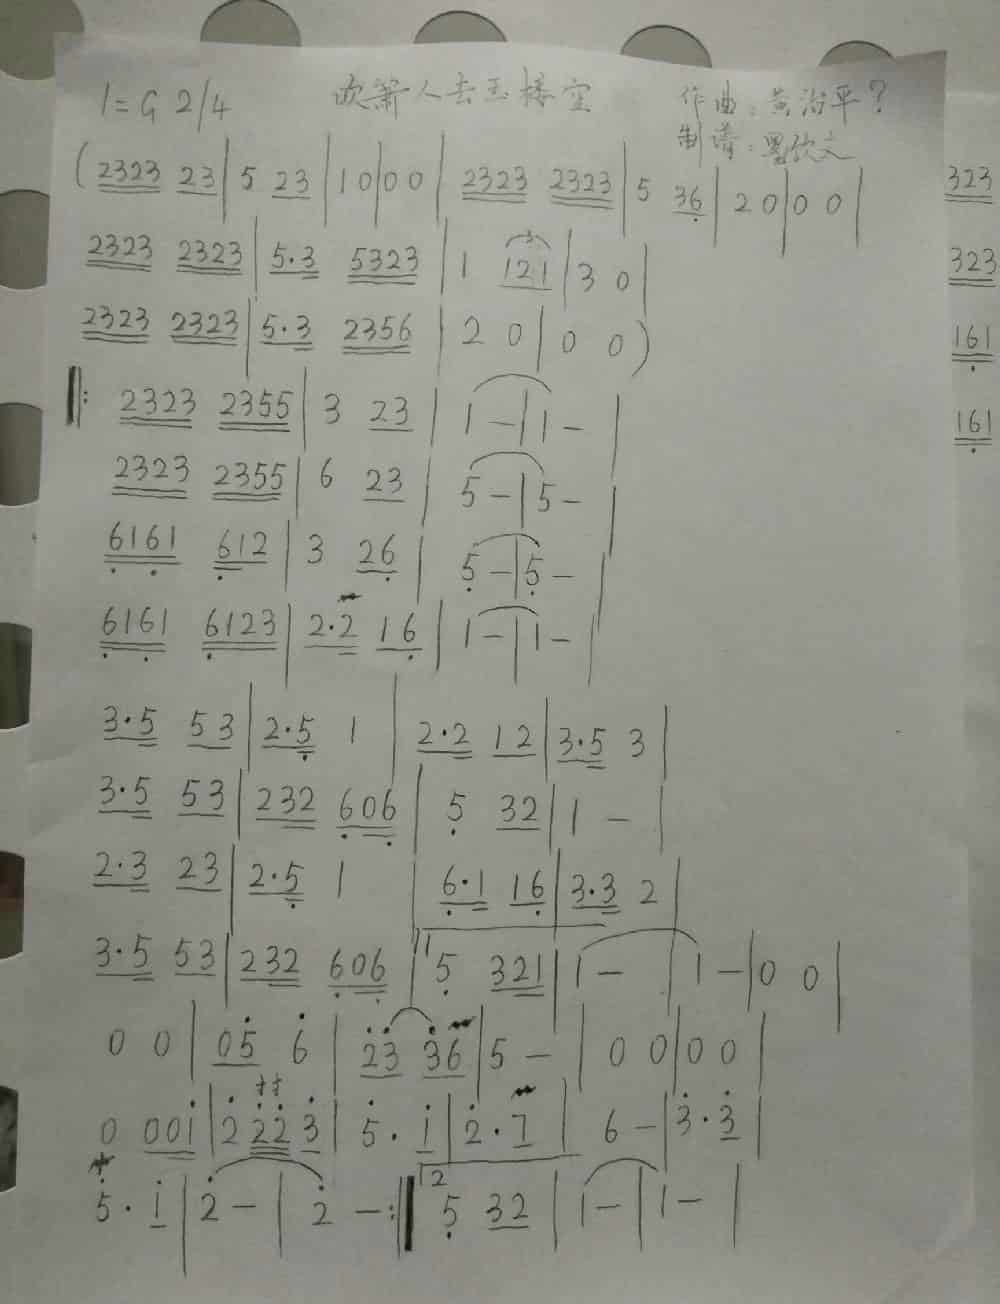 1=G 2/4 吹箫人去玉楼空 作曲：黄沾平？
制谱：墨钦文
( 2323 23 | 5 23 | 1 0 | 0 0 | 2323 2323 | 5 36̣ | 2 0 | 0 0 |
2323 2323 | 5·3 5323 | 1 121 | 3 0 |
2323 2323 | 5·3 2356 | 2 0 | 0 0 )
‖: 2323 2355 | 3 23 | 1 - | 1 - |
2323 2355 | 6 23 | 5 - | 5 - |
6̣16̣1 6̣12 | 3 26̣ | 5̣ - | 5̣ - |
6̣16̣1 6̣123 | 2·2 16̣ | 1 - | 1 - |
3·5 53 | 2·5̣ 1 | 2·2 12 | 3·5 3 |
3·5 53 | 232 6̣06̣ | 5̣ 32 | 1 - |
2·3 23 | 2·5̣ 1 | 6̣·1 16̣ | 3·3 2 |
3·5 53 | 232 6̣06̣ | 1 5̣ 321 | 1 - | 1 - | 0 0 |
0 0 | 05̇ 6̇ | 2̇3̇ 3̇6 | 5 - | 0 0 | 0 0 |
0 001̇ | 2̇ 2̇2̇ 3̇ | 5̇· 1̇ | 2̇· 7 | 6 - | 3̇· 3̇ |
5̇· 1̇ | 2̇ - | 2̇ - :‖ 2 5̣ 32 | 1 - | 1 - |
323
323
161
161